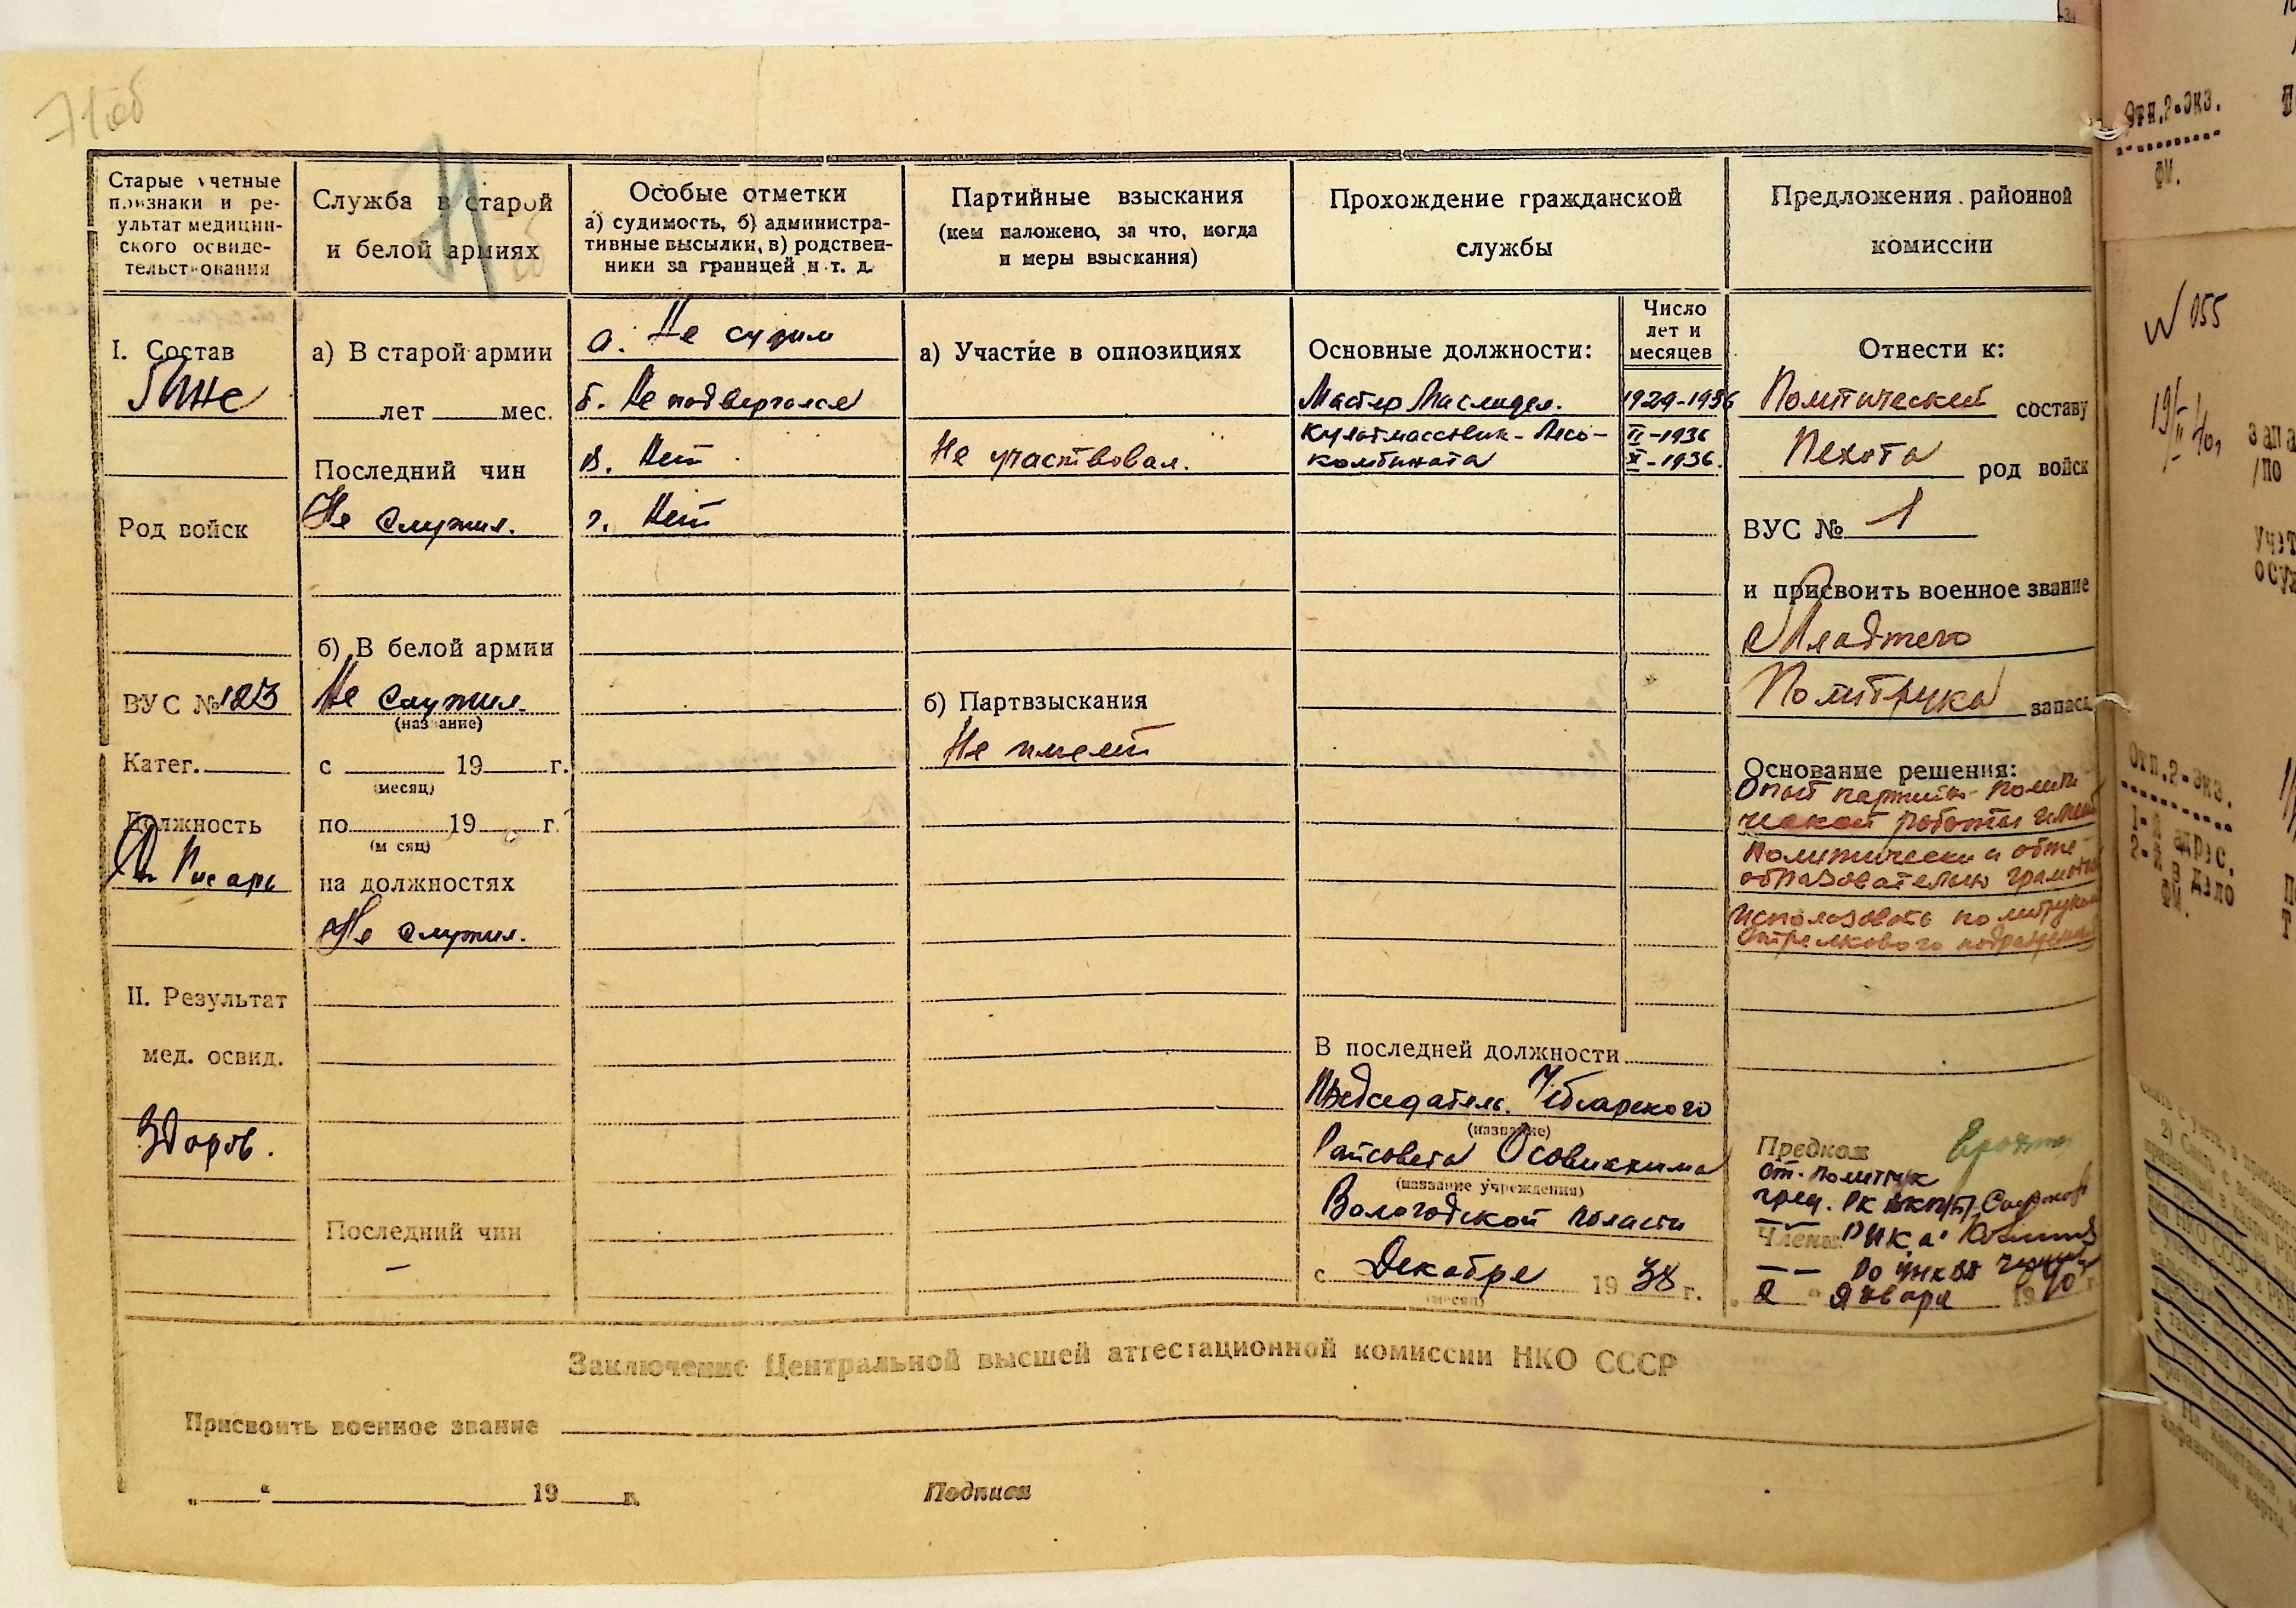 71об
71
Старые учетные
признаки и ре-
ультат медицин-
ского освиде-
тельствования
I. Состав
Род войск
ВУС № 123
Катег.
Должность
Писарь
II. Результат
мед. освид.
Здоров.
Служба в старой
и белой армиях
а) В старой армии
лет мес.
Последний чин
Не служил.
б) В белой армии
Не служил.
(название)
с 19 г.
(месяц)
по 19 г.
(м сяц)
на должностях
Не служил.
Последний чин
—
Особые отметки
а) судимость, б) администра-
тивные высылки, в) родствен-
ники за границей и т. д.
а. Не судим
б. Не подвергался
в. Нет
г. Нет
Партийные взыскания
(кем наложено, за что, когда
и меры взыскания)
а) Участие в оппозициях
Не участвовал.
б) Партвзыскания
Не имеет
Прохождение гражданской
службы
Основные должности:
Число
лет и
месяцев
Мастер Маслодел. 1929-1936
Культмассовик - Лесо- II-1936
комбината XI-1936.
В последней должности
Председатель
(название)
Райсовета Осовиахима
(название учреждения)
Вологодской области
с Декабря 1938 г.
(месяц)
Предложения районной
комиссии
Отнести к:
Политический составу
Пехота род войск
ВУС № 1
и присвоить военное звание
Младшего
Политрука запаса
Основание решения:
Опыт партийно-полити
ческой работы имеет
Политически и обще-
образовательно грамотен
Использовать политруком
стрелкового подразделения
Предком
ст. политрук
пред. РК ВКП(б)
Члены: РИКа
РО УНКВД
„ 2 “ Января 1940 г.
Заключение Центральной высшей аттестационной комиссии НКО СССР
Присвоить военное звание
„ “ 19 г.
Подписи
Отп.2-экз.
ФМ.
№ 055
Отп.2-экз.
1-й адрес.
2-й в дело
ФМ.